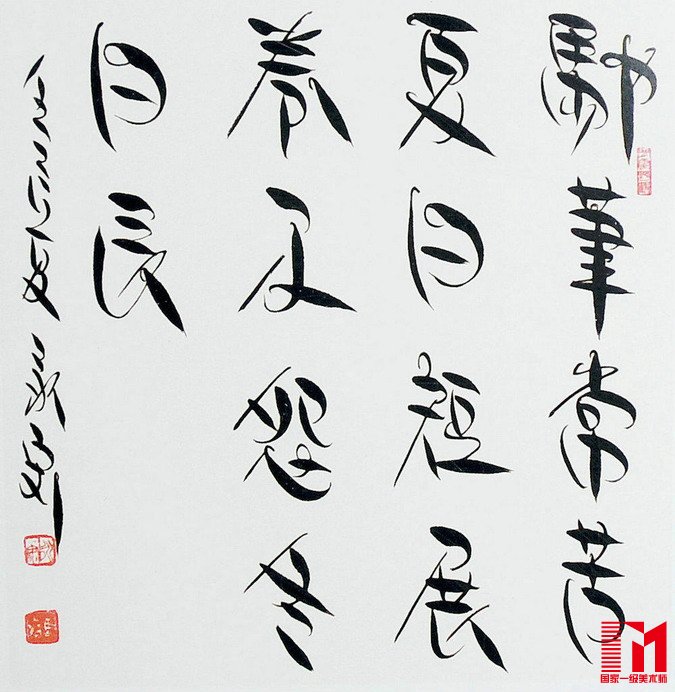 馳筆常苦
夏日短展
卷又怨冬
日長
国家一级美术师